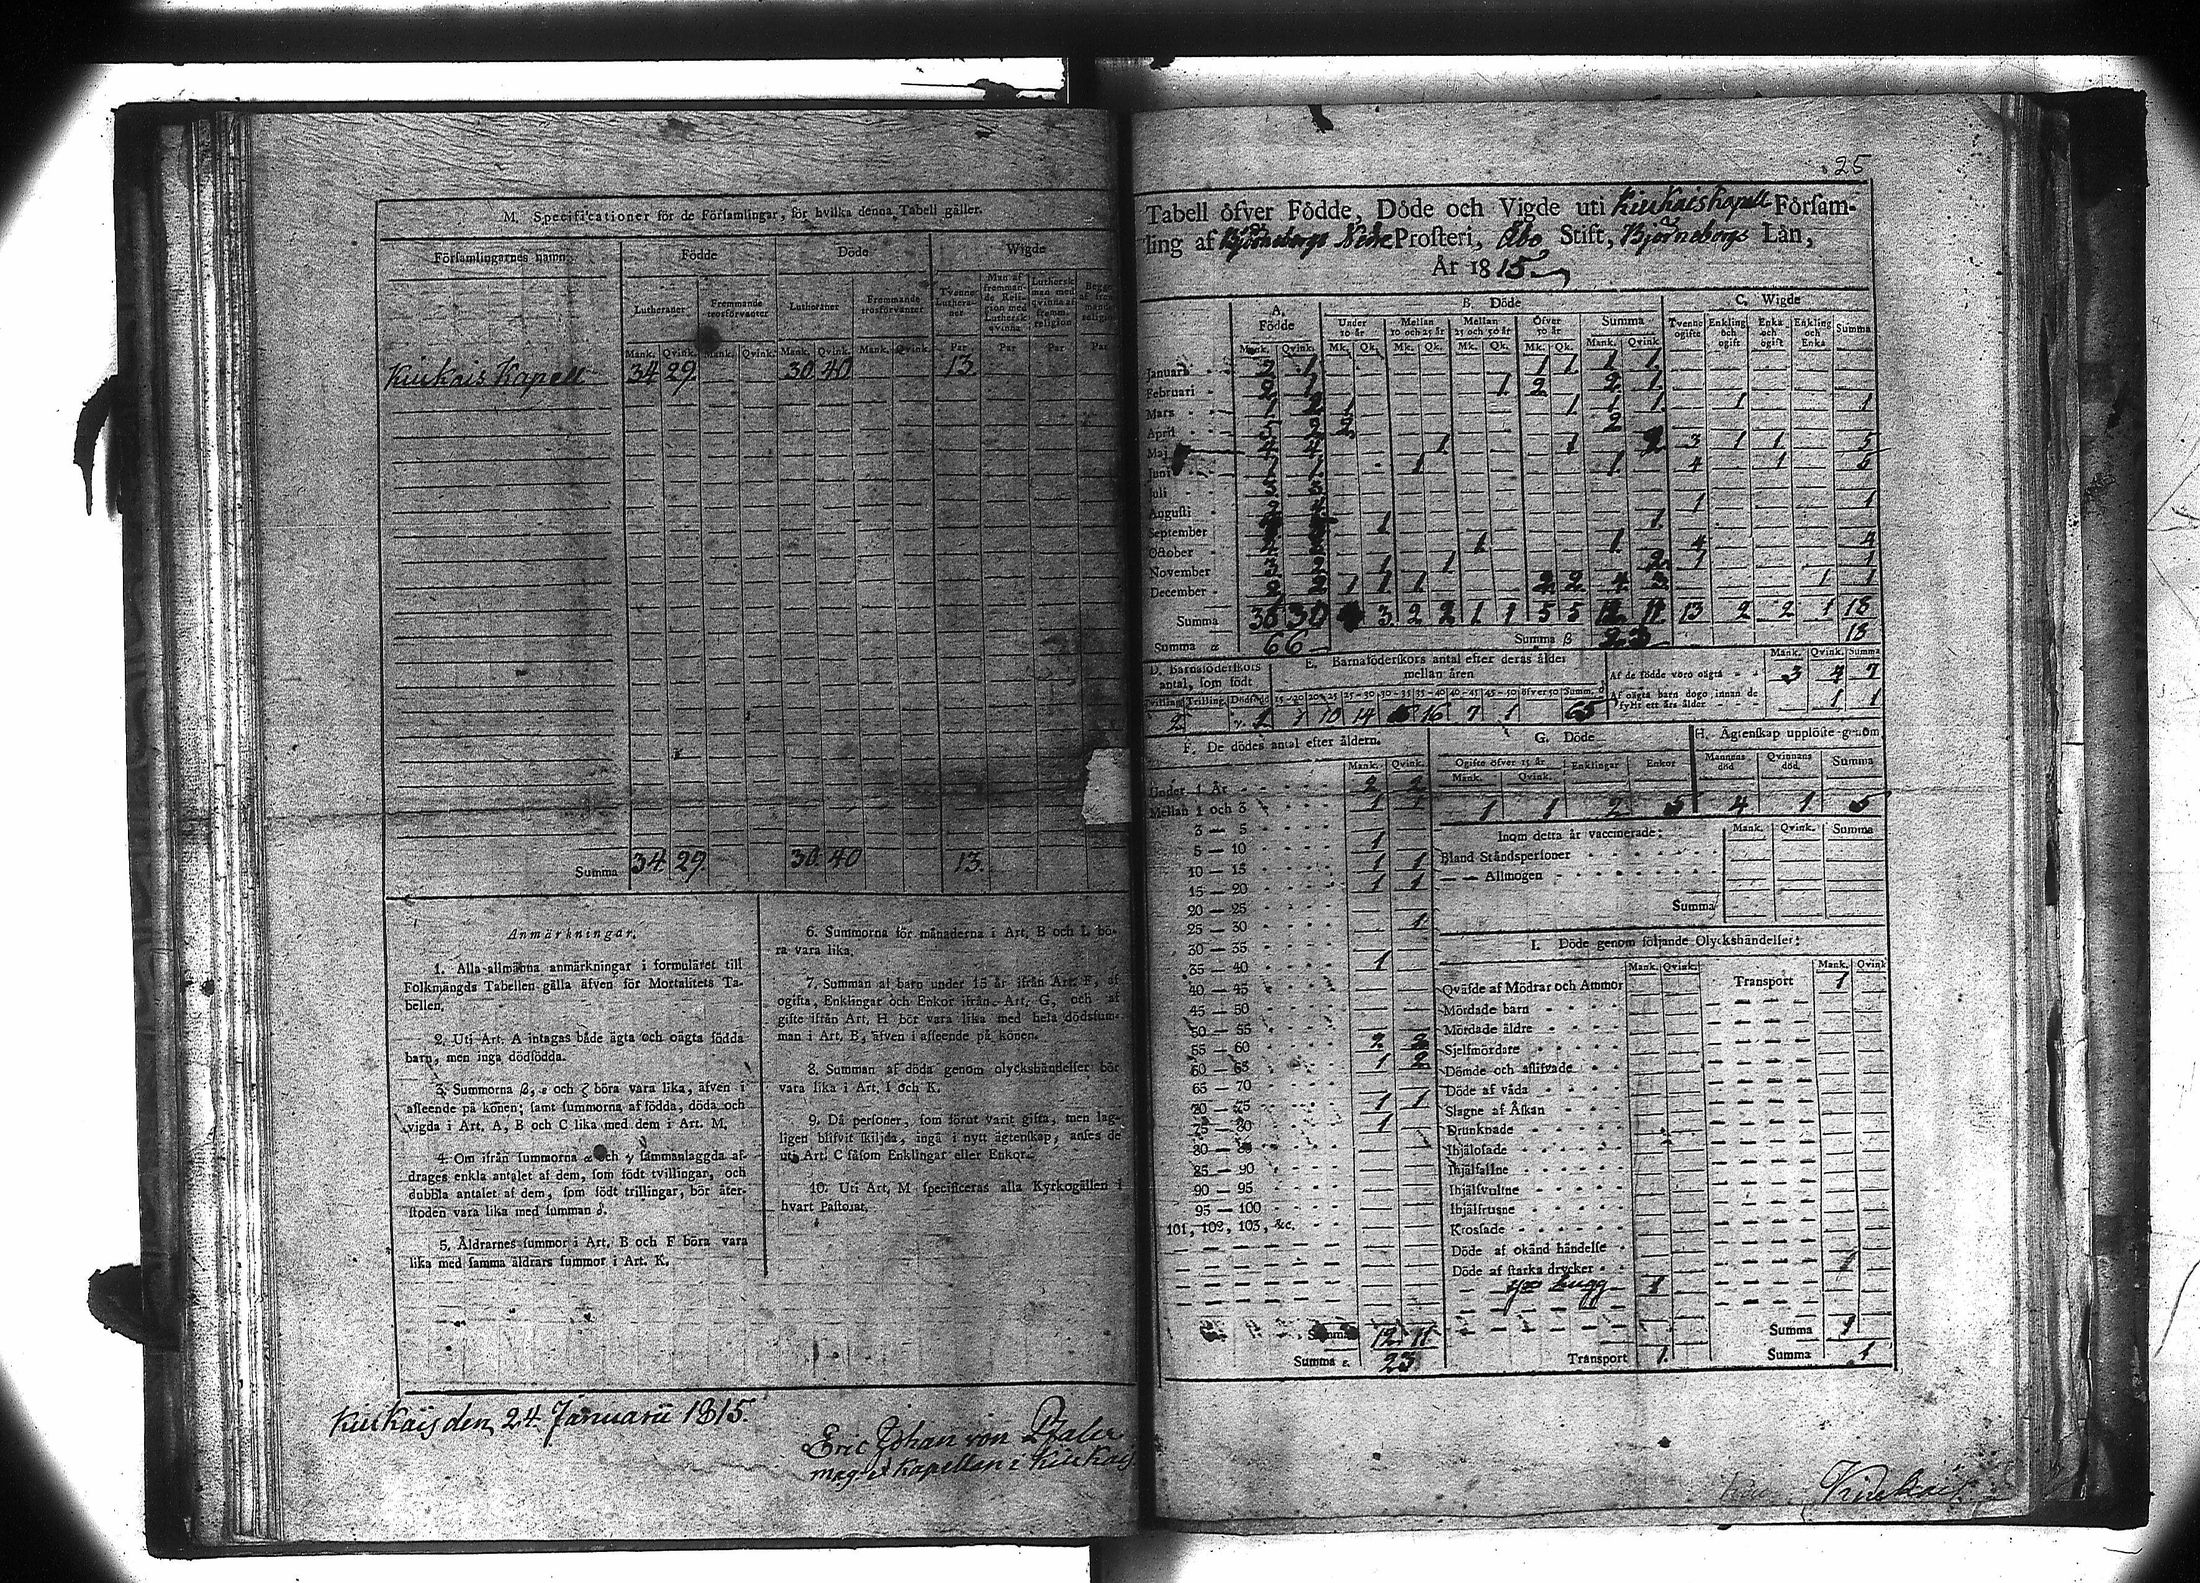 M. Specificationer för de Församlingar, för hvilka denna Tabell gäller.
Församlingarnes namn. Födde Döde Wigde
Lutheraner Fremmande trosförvanter Lutheraner Fremmande trosförvanter Tvenne Lutheraner Man af fremmande Religion med Luthersk qvinna Luthersk man med qvinna af fremm. religion
Mank. Qvink. Mank. Qvink. Mank. Qvink. Mank. Qvink. Par Par Par Par
Kiukais Kapell 34 29. 30 40 13.
Summa 34 29. 30 40 13.
Anmärkningar.
1. Alla allmänna anmärkningar i formuläret till
Folkmängds Tabellen gälla äfven för Mortalitets Ta-
bellen.
2. Uti Art. A intagas både ägta och oägta födda
barn, men inga dödfödda.
3. Summorna β, ε och ζ böra vara lika, äfven i
afseende på könen; samt summorna af födda, döda och
vigda i Art. A, B och C lika med dem i Art. M.
4. Om ifrån summorna α och γ sammanlaggda af-
drages enkla antalet af dem, som födt tvillingar, och
dubbla antalet af dem, som födt trillingar, bör åter-
stoden vara lika med summan δ.
5. Åldrarnes summor i Art. B och F böra vara
lika med samma åldrars summor i Art. K.
6. Summorna för månaderna i Art. B och L bö-
ra vara lika.
7. Summan af barn under 15 år ifrån Art. F, af
ogifta, Enklingar och Enkor ifrån Art. G, och af
gifte ifrån Art. H bör vara lika med hela dödssum-
man i Art. B, äfven i afseende på könen.
8. Summan af döda genom olyckshändelser bör
vara lika i Art. I och K.
9. Då personer, som förut varit gifta, men lag-
ligen blifvit skiljda, ingå i nytt ägtenskap, anses de
uti Art. C såsom Enklingar eller Enkor.
10. Uti Art. M specificeras alla Kyrkogällen i
hvart Pastorat.
Kiukais den 24. Januarii 1815.
Eric Johan von Pfaler
mag. et Kapellan i Kiukais
25
Tabell öfver Födde, Döde och Vigde uti Kiukais Kapell Försam-
ling af Björneborgs Nedre Prosteri, Åbo Stift, Björneborgs Län,
År 1815.
A. Födde B. Döde C. Wigde
Under 10 år Mellan 10 och 25 år Mellan 25 och 50 år Öfver 50 år Summa Tvenne ogifte Enkling och ogift Enka och ogift Enkling och Enka Summa
Mank. Qvink. Mk. Qk. Mk. Qk. Mk. Qk. Mk. Qk. Mank. Qvink.
Januari 2 1 1 1 1 1
Februari 2 1 1 2 2 1
Mars 1 1 1 1 1
April 2 2
Maj 4 4 1 1 2 3 1 1 5
Juni 1 1 4 1 5
Juli
Augusti 1 1
September 1 1
October 1 1 4 4
November 3 2 1 1 2 1 1
December 2 2 1 1 1 2 2 4 3 1 1
Summa 36 30 4 3 2 2 1 1 5 5 12 11 13 2 2 1 18
Summa α 66 Summa β 23 18
D. Barnaföderskors antal, som födt E. Barnaföderskors antal efter deras ålder mellan åren
Tvilling. Trilling. Dödfödd 15-20 20-25 25-30 30-35 35-40 40-45 45-50 öfver 50 Summ. δ
2 γ 1 1 10 14 16 7 1 65
Mank. Qvink. Summa
Af de födde voro oägta 3 4 7
Af oägta barn dogo innan de fyllt ett års ålder 1 1
F. De dödes antal efter åldern.
Mank. Qvink.
Under 1 År 2 2
Mellan 1 och 3 1 1
3 — 5
5 — 10 1
10 — 15 1 1
15 — 20 1 1
20 — 25
25 — 30 1
30 — 35
35 — 40 1
40 — 45
45 — 50
50 — 55
55 — 60 2 2
60 — 65 1 2
65 — 70
70 — 75 1 1
75 — 80 1
80 — 85
85 — 90
90 — 95
95 — 100
101, 102, 103, &c.
Summa 12 11
Summa ε. 23
G. Döde
Ogifte öfver 15 år Enklingar Enkor
Mank. Qvink.
1 1 2 5
H. Ägtenskap upplöste genom
Mannens död Qvinnans död. Summa
4 1 5
Inom detta år vaccinerade: Mank. Qvink. Summa
Bland Ståndspersoner
— — Allmogen
Summa
I. Döde genom följande Olyckshändelser:
Mank. Qvink. Mank. Qvink
Qväfde af Mödrar och Ammor Transport 1
Mördade barn
Mördade äldre
Sjelfmördare
Dömde och aflifvade
Döde af våda
Slagne af Åskan
Drunknade
Ihjälosade
Ihjälfallne
Ihjälsvultne
Ihjälfrusne
Krossade
Döde af okänd händelse
Döde af starka drycker
yxe hugg 1
Summa 1
Transport 1. Summa 1
Kiukais